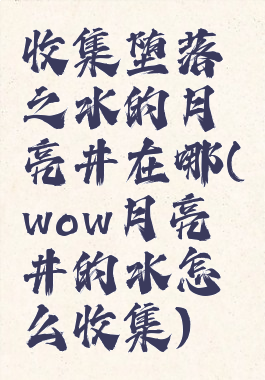 收集堕落
之水的月
亮井在哪(
wow月亮
井的水怎
么收集)